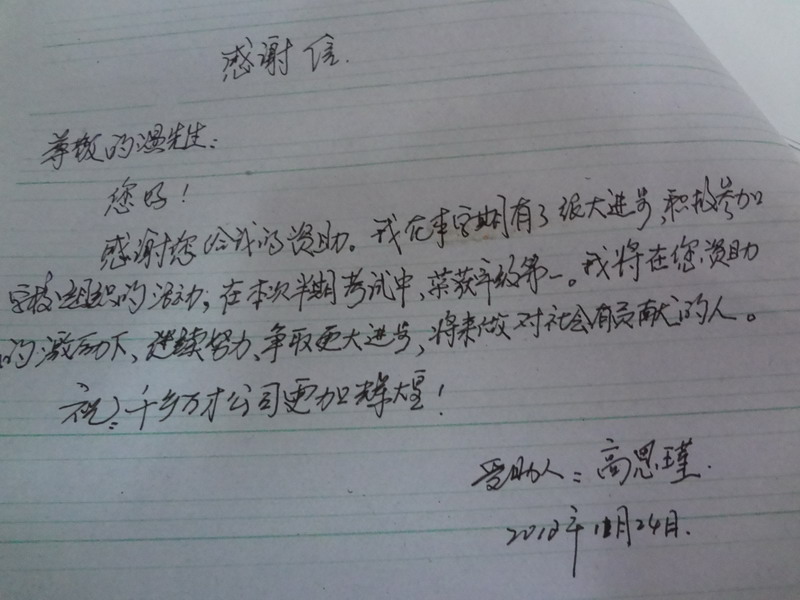 感谢信.
尊敬的温先生:
您好!
感谢您给我的资助。我在本学期有了很大进步,积极参加
学校组织的活动,在本次半期考试中,荣获年级第一。我将在您资助
的激励下,继续努力、争取更大进步,将来做对社会有贡献的人。
祝:千乡万才公司更加辉煌!
受助人:高思瑾.
年11月24日.